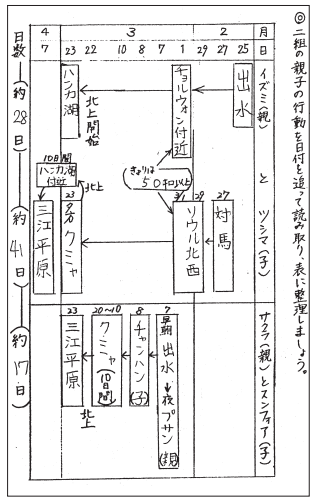 ◎二組の親子の行動を日付を追って読み取り、表に整理しましょう。
月 2 3 4
日 25 27 29 1 7 8 10 22 23 7
イズミ(親)とツシマ(子)
出水
チョルウォン付近
北上開始
ハンカ湖
きょりは
50キロ以上
27
対馬
29
3/1
ソウル北西
23
クミャ
北上
10日間
ハンカ湖
付近
三江平原
サクラ(親)とスンファア(子)
7
早朝
出水→夜プサン(親)
8
チャンハン(子)
20~10
クミャ(10日間)
北上
23
三江平原
日数
約28日
約41日
約17日